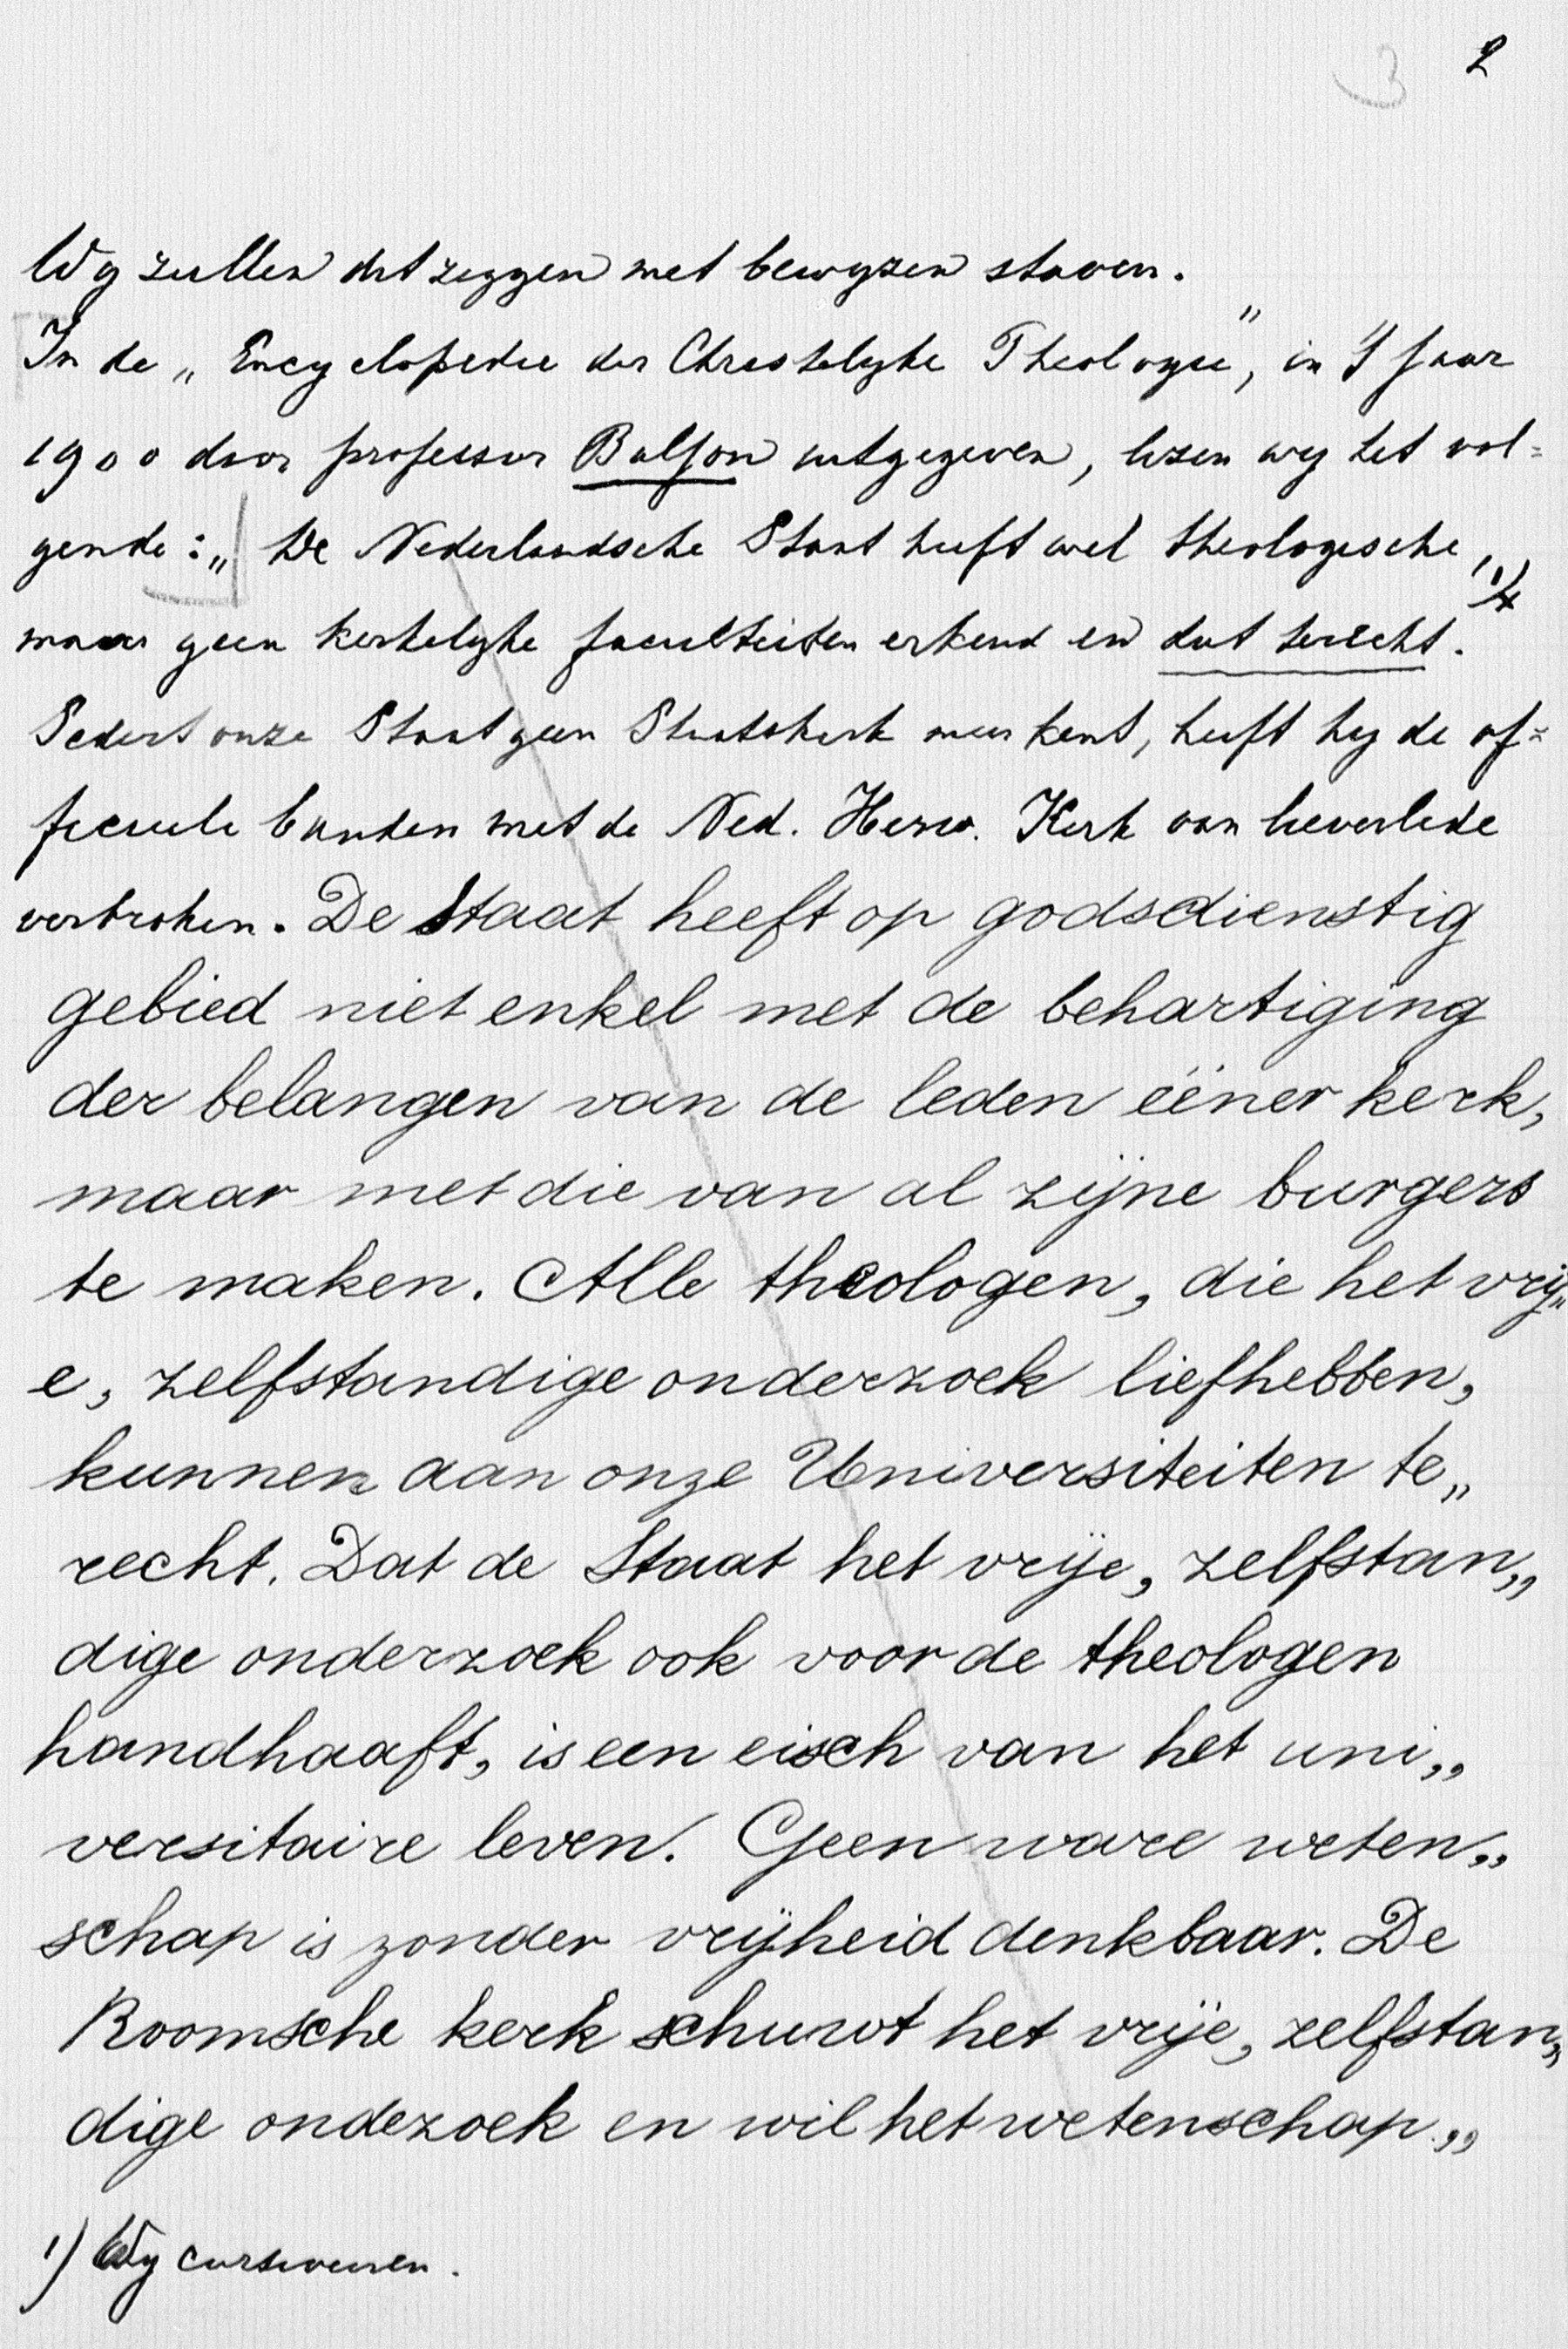 3 2
Wy zullen dit zeggen met bewyzen staven.
In de „Encyclopedie der Christelyke Theologie", in 't jaar
1900 door professor Baljon uitgegeven, lezen wy het vol=
gende: „De Nederlandsche Staat heeft wel theologische,
maar geen kerkelyke faculteiten erkend en dat terecht. 1)
Sedert onze Staat geen Staatskerk meer kent, heeft hy de of=
ficieele banden met de Ned. Herv. Kerk van lieverlede
verbroken. De Staat heeft op godsdienstig
gebied niet enkel met de behartiging
der belangen van de leden ééner kerk,
maar met die van al zijne burgers
te maken. Alle theologen, die het vrij„
e, zelfstandige onderzoek liefhebben,
kunnen aan onze Universiteiten te„
recht. Dat de Staat het vrije, zelfstan„
dige onderzoek ook voor de theologen
handhaaft, is een eisch van het uni„
versitaire leven. Geen ware weten„
schap is zonder vrijheid denkbaar. De
Roomsche kerk schuwt het vrije, zelfstan„
dige ondezoek en wil het wetenschap„
1) Wy cursiveeren.